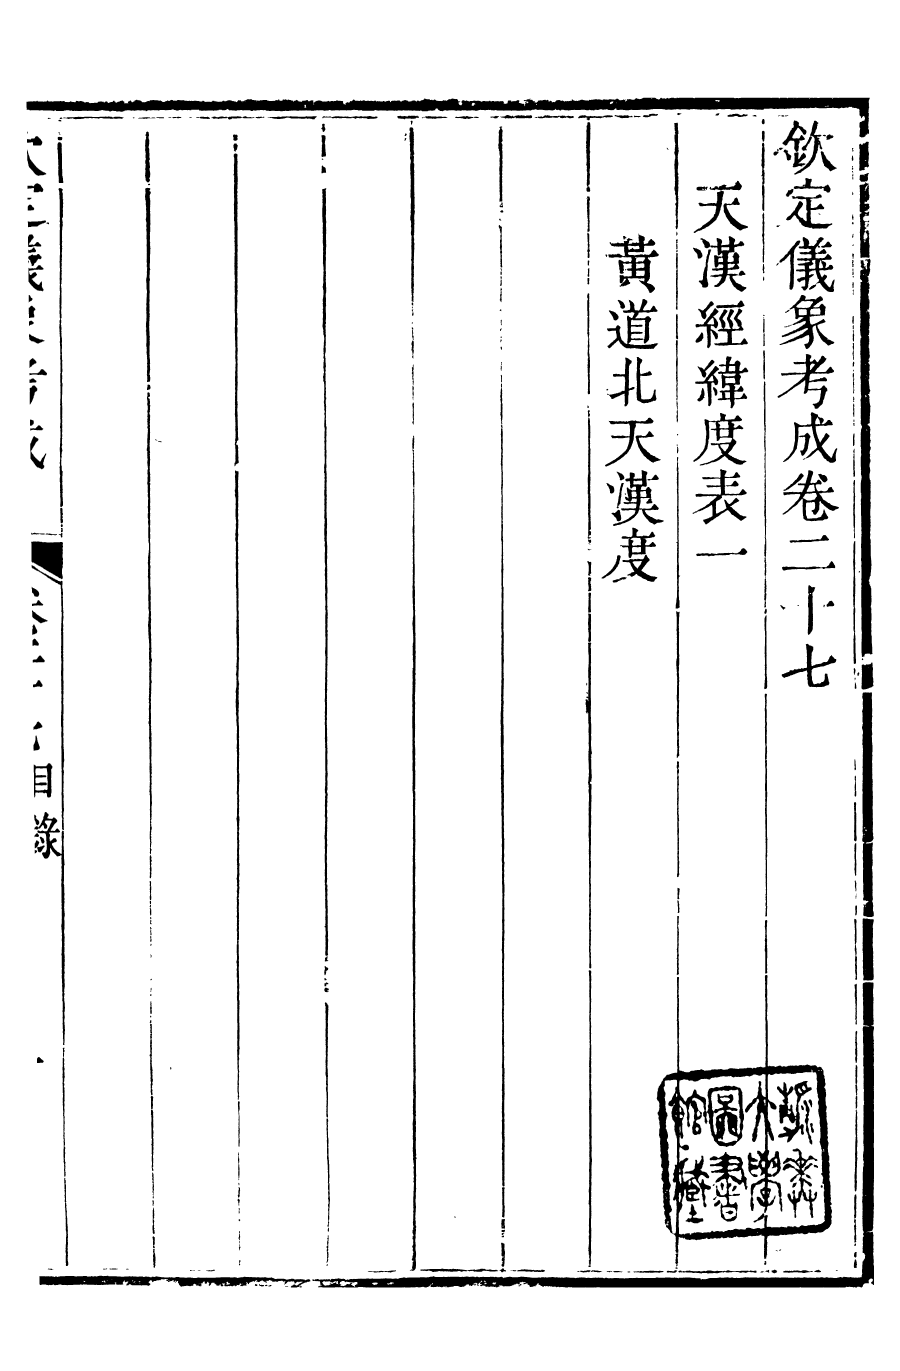 欽定儀象考成卷二十七
天漢經緯度表一
黃道北天漢度
欽定儀象考成
卷二十七目錄
一
燕京大學圖書館藏